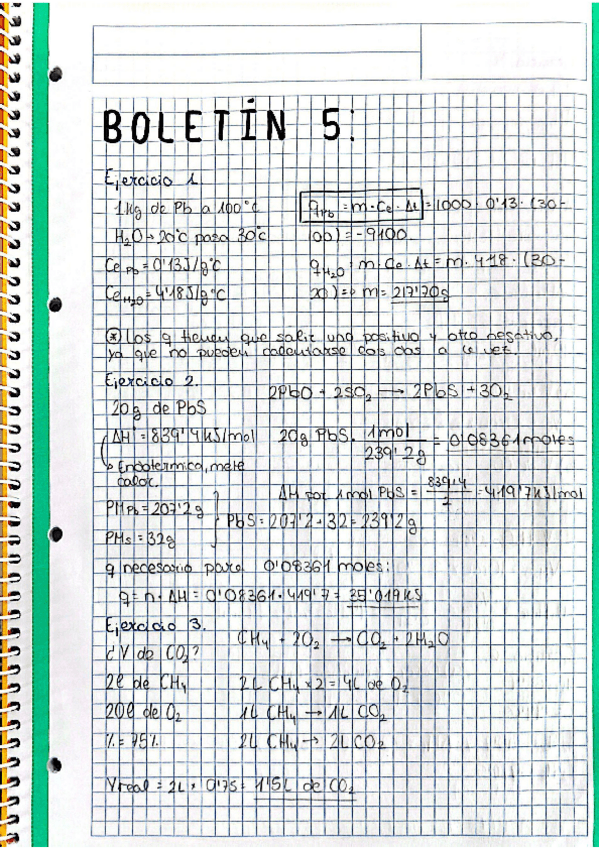 BOLETÍN 5:
Ejercicio 1.
1 Kg de Pb a 100°C
H₂O → 20°C pasa 30°C
Ce Pb = 0'13 J/g°C
Ce H₂O = 4'18 J/g°C
q Pb = m · Ce · Δt = 1000 · 0'13 · (30-
100) = -9100
q H₂O = m · Ce · Δt = m · 4'18 · (30-
20) => m = 217'70g
* Los q tienen que salir uno positivo y otro negativo,
ya que no pueden calentarse los dos a la vez.
Ejercicio 2.
2PbO + 2SO₂ → 2PbS + 3O₂
20g de PbS
ΔH = 839'4 KJ/mol
Endotérmica, mete
calor.
20g PbS · 1mol / 239'2g = 0'08361 moles
ΔH por 1mol PbS = 839'4 / 2 = 419'7 KJ/mol
PM Pb = 207'2g
PM S = 32g
PbS = 207'2 + 32 = 239'2g
q necesario para 0'08361 moles:
q = n · ΔH = 0'08361 · 419'7 = 35'019 KJ
Ejercicio 3.
CH₄ + 2O₂ → CO₂ + 2H₂O
¿V de CO₂?
2l de CH₄
20l de O₂
% = 75%
2L CH₄ × 2 = 4L de O₂
1L CH₄ → 1L CO₂
2L CH₄ → 2L CO₂
Vreal = 2L × 0'75 = 1'5L de CO₂